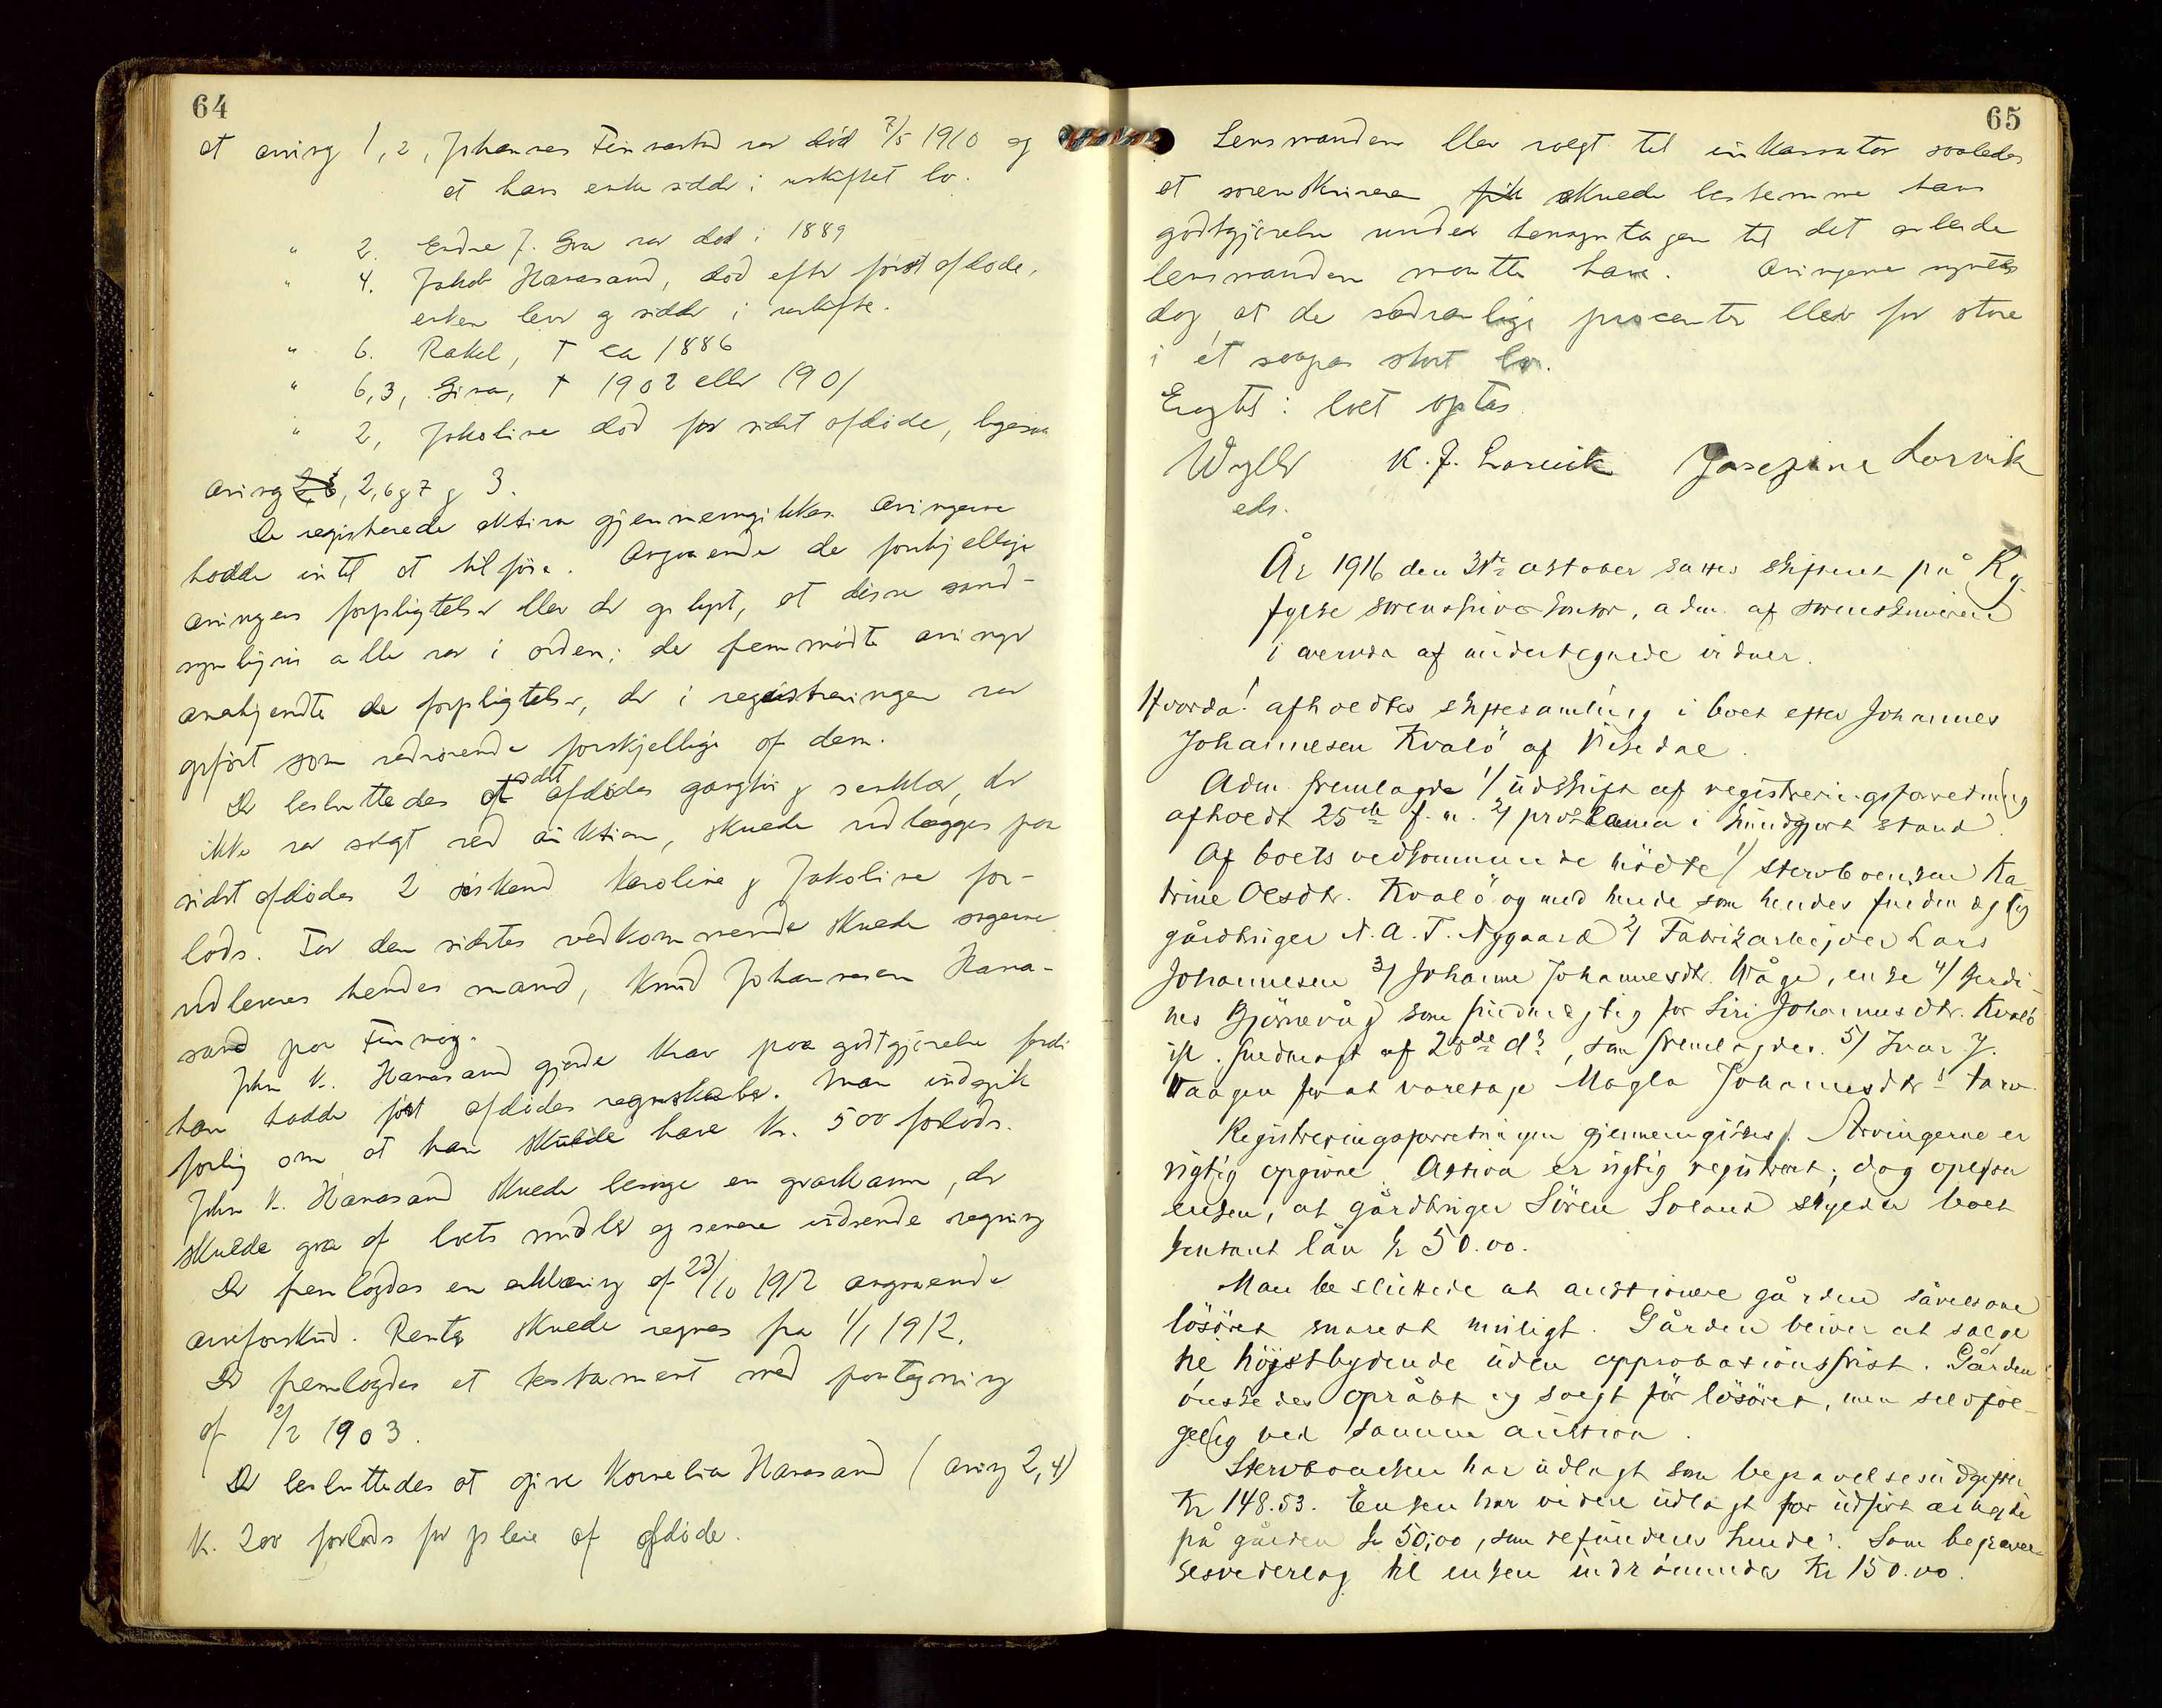 64
at arving 1, 2, Johannes Finnesand var död 7/5 1910 og
at hans enke sidder i uskiftet bo.
" 2. Endre J. Gra var död i 1889
" 4. Jakob Hanasand, död efter först afdöde,
enken lever og sidder i uskifte.
" 6. Rakel, † ca 1886
" 6,3, Sina, † 1902 eller 1901
" 2, Jakoline död för sidst afdöde, ligesaa
arving 2, 6 og 7 og 3.
De registrerede aktiva gjennemgikkes. Arvingerne
hadde intet at tilföie. Angaaende de forskjellige
arvingers forpligtelser blev der oplyst, at disse sand-
synligvis alle var i orden; de fremmödte arvinger
anerkjendte de forpligtelser, der i registreringen var
opfört som vedrörende forskjellige af dem.
Der besluttedes at sidst afdödes gangtöi og sengklær, der
ikke var solgt ved auktion, skulde udlægges paa
sidst afdödes 2 söskend Karoline og Jakoline for-
lods. For den sidstes vedkommende skulde sagerne
udleveres hendes mand, Knud Johannesen Hana-
sand paa Finnöy.
John K. Hanasand gjorde krav paa godtgjörelse fordi
han hadde fört afdödes regnskaber. Man indgik
forlig om at han skulde have kr. 500 forlods.
John K. Hanasand skulde besörge en gravkam, der
skulde gaa af boets midler og senere indsende regning
Der fremlagdes en erklæring af 23/10 1912 angaaende
arveforskud. Renter skulde regnes fra 1/1 1912.
Der fremlagdes et testament med paategning
af 2/2 1903.
Der besluttedes at give Kornelia Hanasand (arving 2,4)
kr. 200 forlods for pleie af afdöde.
65
Lensmanden blev valgt til inkassator saaledes
at sorenskriveren fik skulde bestemme hans
godtgjörelse under hensyntagen til det arbeide
lensmanden maatte have. Arvingerne syntes
dog at de sædvanlige procenter blev for store
i et saapas stort bo.
Eragtet: boet optas.
Wyller K. J. Larvik Josefine Lorvik
eds.
År 1916 den 31te oktober sattes skifteret på Ry-
fylke sorenskriverkontor, adm. af sorenskriveren
i overvær af undertegnede vidner.
Hvorda! afholdtes skiftesamling i boet efter Johannes
Johannesen Kvalö af Visedal.
Adm. fremlagde 1/ udskrift af registreringsforretning
afholdt 25de f.m. 2/ proklama i kundgjort stand.
Af boets vedkommende mödte 1/ stervboenken Ka-
trine Olsdtr. Kvalö og med hende som hendes fuldmægtig
gårdbruger N. A. T. Nygaard 2/ Fabrikarbejder Lars
Johannesen 3/ Johanne Johannesdtr. Våge, enke 4/ Gerdi-
nes Björnevåg som fuldmægtig for Siri Johannesdtr. Kvalö
ifl. fuldmagt af 28de ds, som fremlagdes. 5/ Ivar J.
Vaagen for at varetage Magla Johannesdtrs tarv.
Registreringsforretningen gjennemgikkes. Arvingerne er
rigtig opgivne. Aktiva er rigtig registrert; dog oplyser
enken, at gårdbruger Sören Soland skylder boet
kontant lån kr 50.00.
Man besluttede at auktionere gården såvelsom
lösöret snarest muligt. Gården bliver at sælge
til höjstbydende uden approbationsfrist. Gården
önskedes opråbt og solgt för lösöret, men selvföl-
gelig ved samme auktion.
Stervboenken har udlagt som begravelsesudgifter
Kr 148.53. Enken har videre udlagt for udfört arbejde
på gården kr 50,00, som refunderes hende. Som begravel-
sesvederlag til enken indrömmedes Kr 150.00.